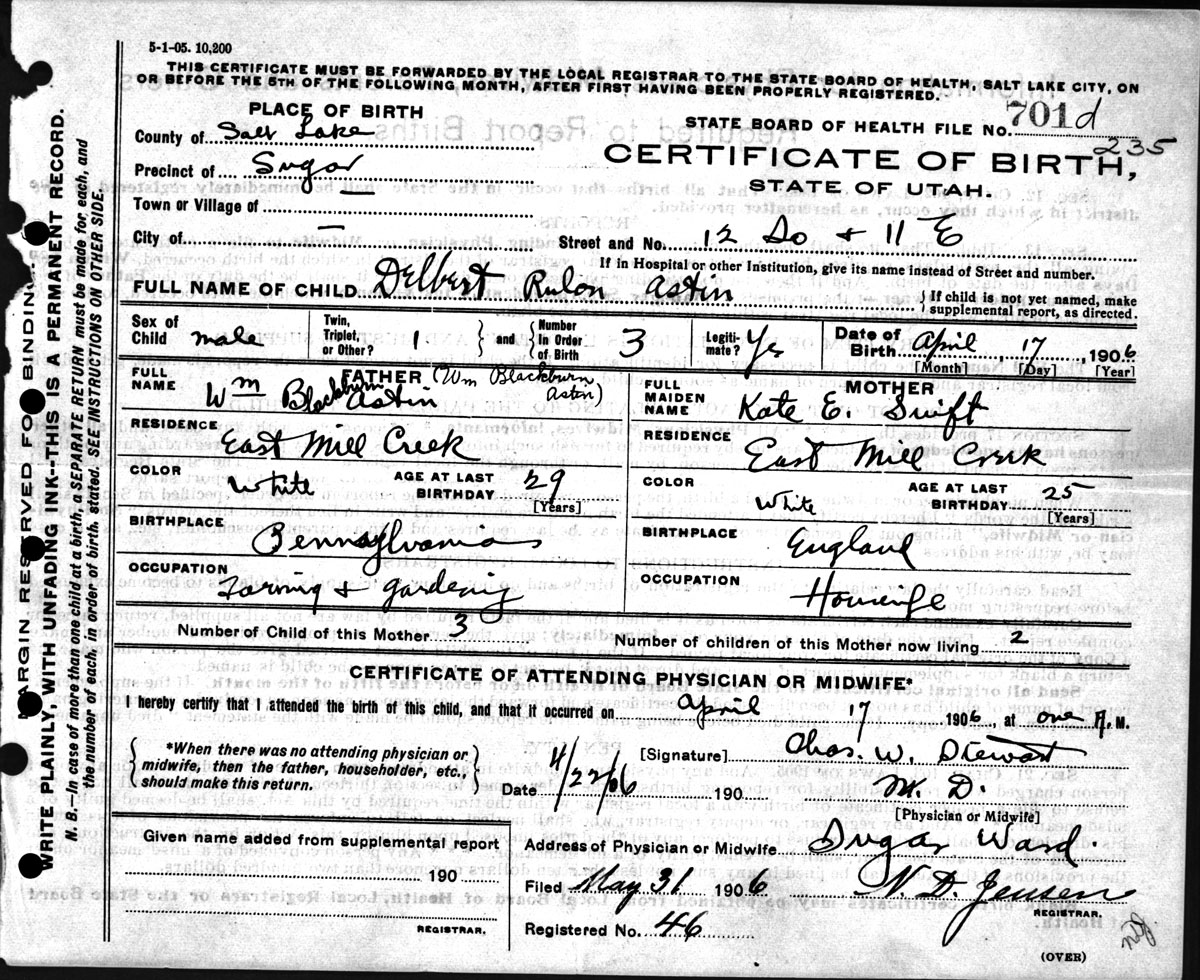 5-1-05. 10,200
THIS CERTIFICATE MUST BE FORWARDED BY THE LOCAL REGISTRAR TO THE STATE BOARD OF HEALTH, SALT LAKE CITY, ON
OR BEFORE THE 5TH OF THE FOLLOWING MONTH, AFTER FIRST HAVING BEEN PROPERLY REGISTERED.
PLACE OF BIRTH
STATE BOARD OF HEALTH FILE NO. 701d
235
County of Salt Lake
CERTIFICATE OF BIRTH,
Precinct of Sugar
STATE OF UTAH.
Town or Village of —
City of — Street and No. 12 So + 11 E
If in Hospital or other Institution, give its name instead of Street and number.
FULL NAME OF CHILD Delbert Rulon Astin { If child is not yet named, make supplemental report, as directed.
Sex of Child male Twin, Triplet, or Other? 1 } and { Number In Order of Birth 3 Legitimate? Yes Date of Birth April 17, 1906
[Month] [Day] [Year]
FATHER (Wm Blackburn Astin)
FULL NAME Wm Blackburn Astin
MOTHER
FULL MAIDEN NAME Kate E. Swift
RESIDENCE East Mill Creek
RESIDENCE East Mill Creek
COLOR White AGE AT LAST BIRTHDAY 29 [Years]
COLOR White AGE AT LAST BIRTHDAY 25 [Years]
BIRTHPLACE Pennsylvania
BIRTHPLACE England
OCCUPATION Farming + Gardening
OCCUPATION Housewife
Number of Child of this Mother 3 Number of children of this Mother now living 2
CERTIFICATE OF ATTENDING PHYSICIAN OR MIDWIFE*
I hereby certify that I attended the birth of this child, and that it occurred on April 17 1906, at one A. M.
{ *When there was no attending physician or midwife, then the father, householder, etc., should make this return. }
[Signature] Chas. W. Stewart
Date 4/22 06 190 M. D.
[Physician or Midwife]
Given name added from supplemental report
Address of Physician or Midwife Sugar Ward.
190
Filed May 31 1906 N. D. Jensen
REGISTRAR.
REGISTRAR.
Registered No. 46
(OVER)
MARGIN RESERVED FOR BINDING
WRITE PLAINLY, WITH UNFADING INK—THIS IS A PERMANENT RECORD.
N. B.—In case of more than one child at a birth, a SEPARATE RETURN must be made for each, and
the number of each, in order of birth, stated. SEE INSTRUCTIONS ON OTHER SIDE.